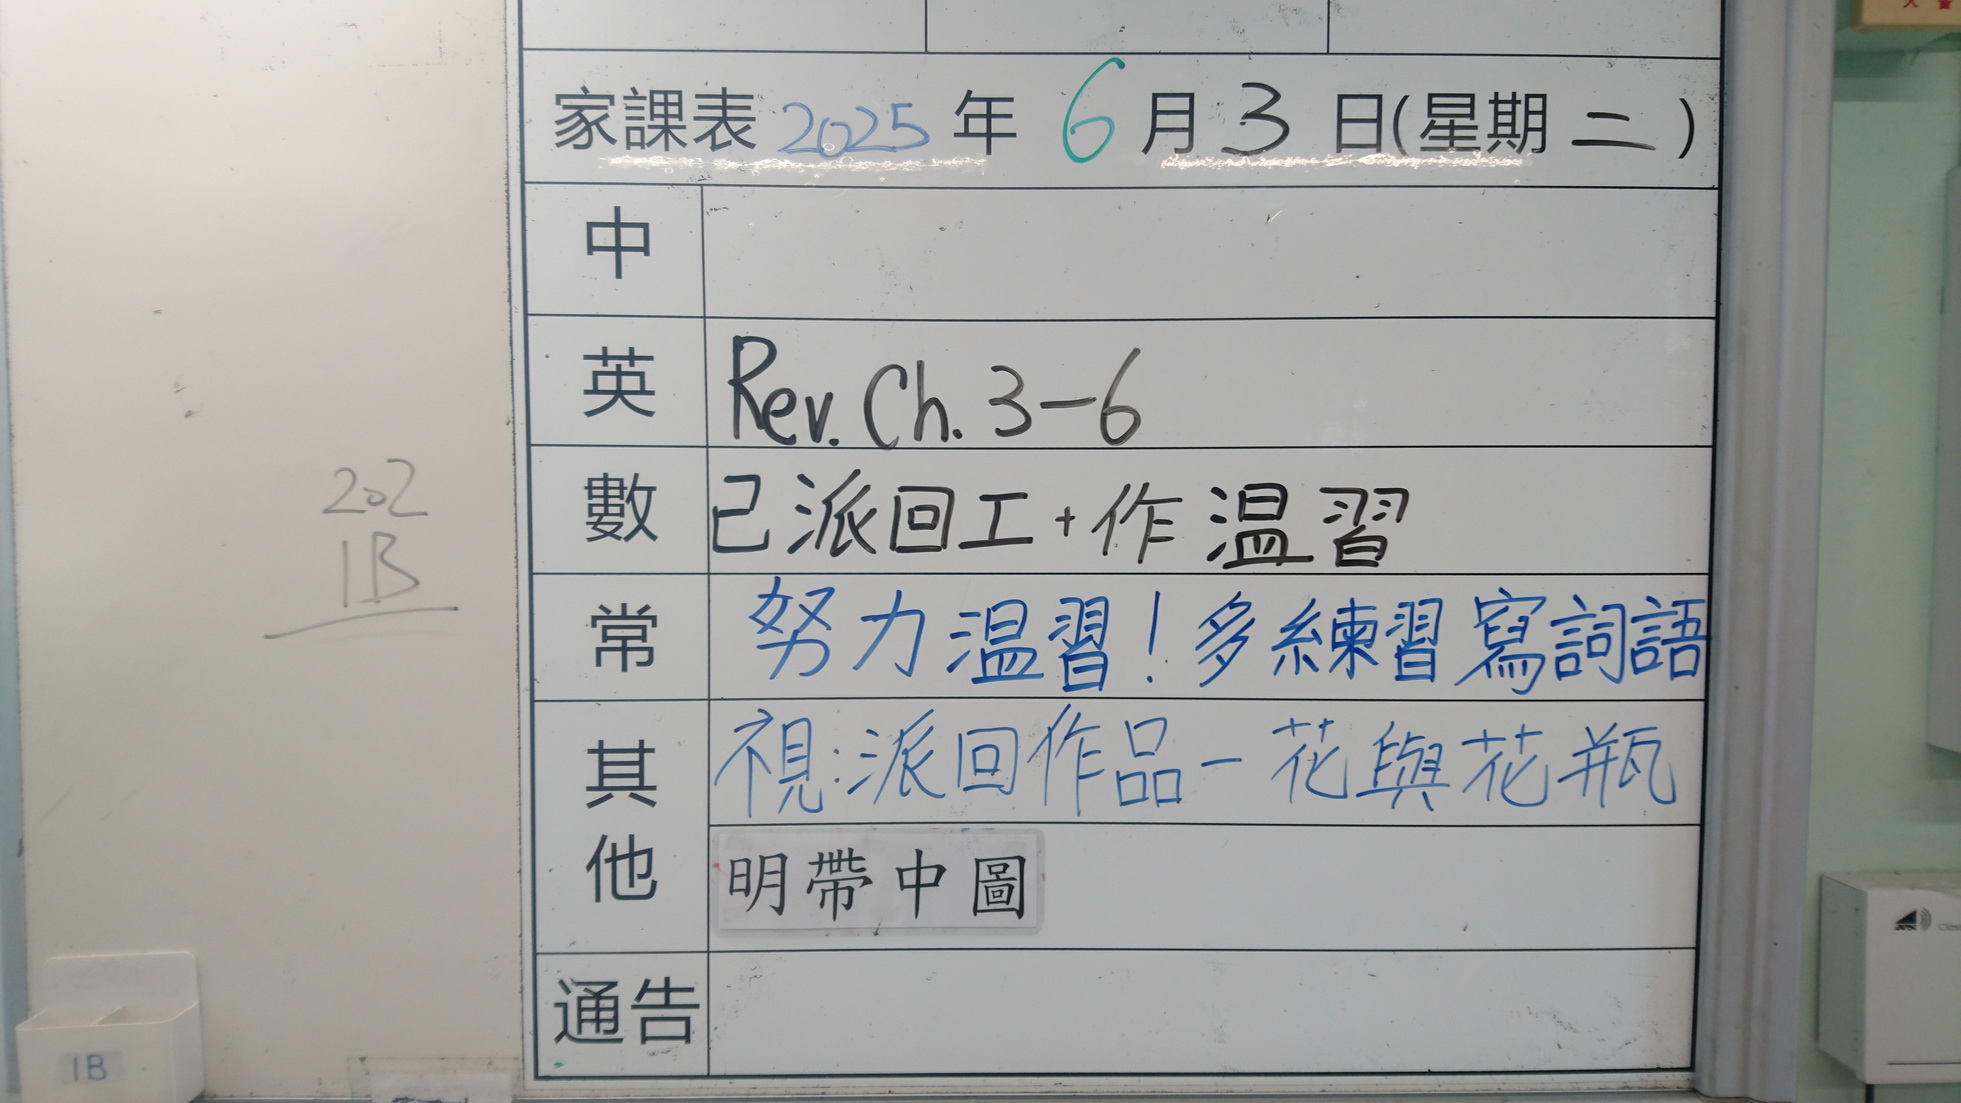 家課表 2025 年 6 月 3 日(星期 二 )
中
英 Rev. Ch. 3-6
數 已派回工+作温習
常 努力温習!多練習寫詞語
其他 視:派回作品-花與花瓶
明帶中圖
通告
202
1B
1B